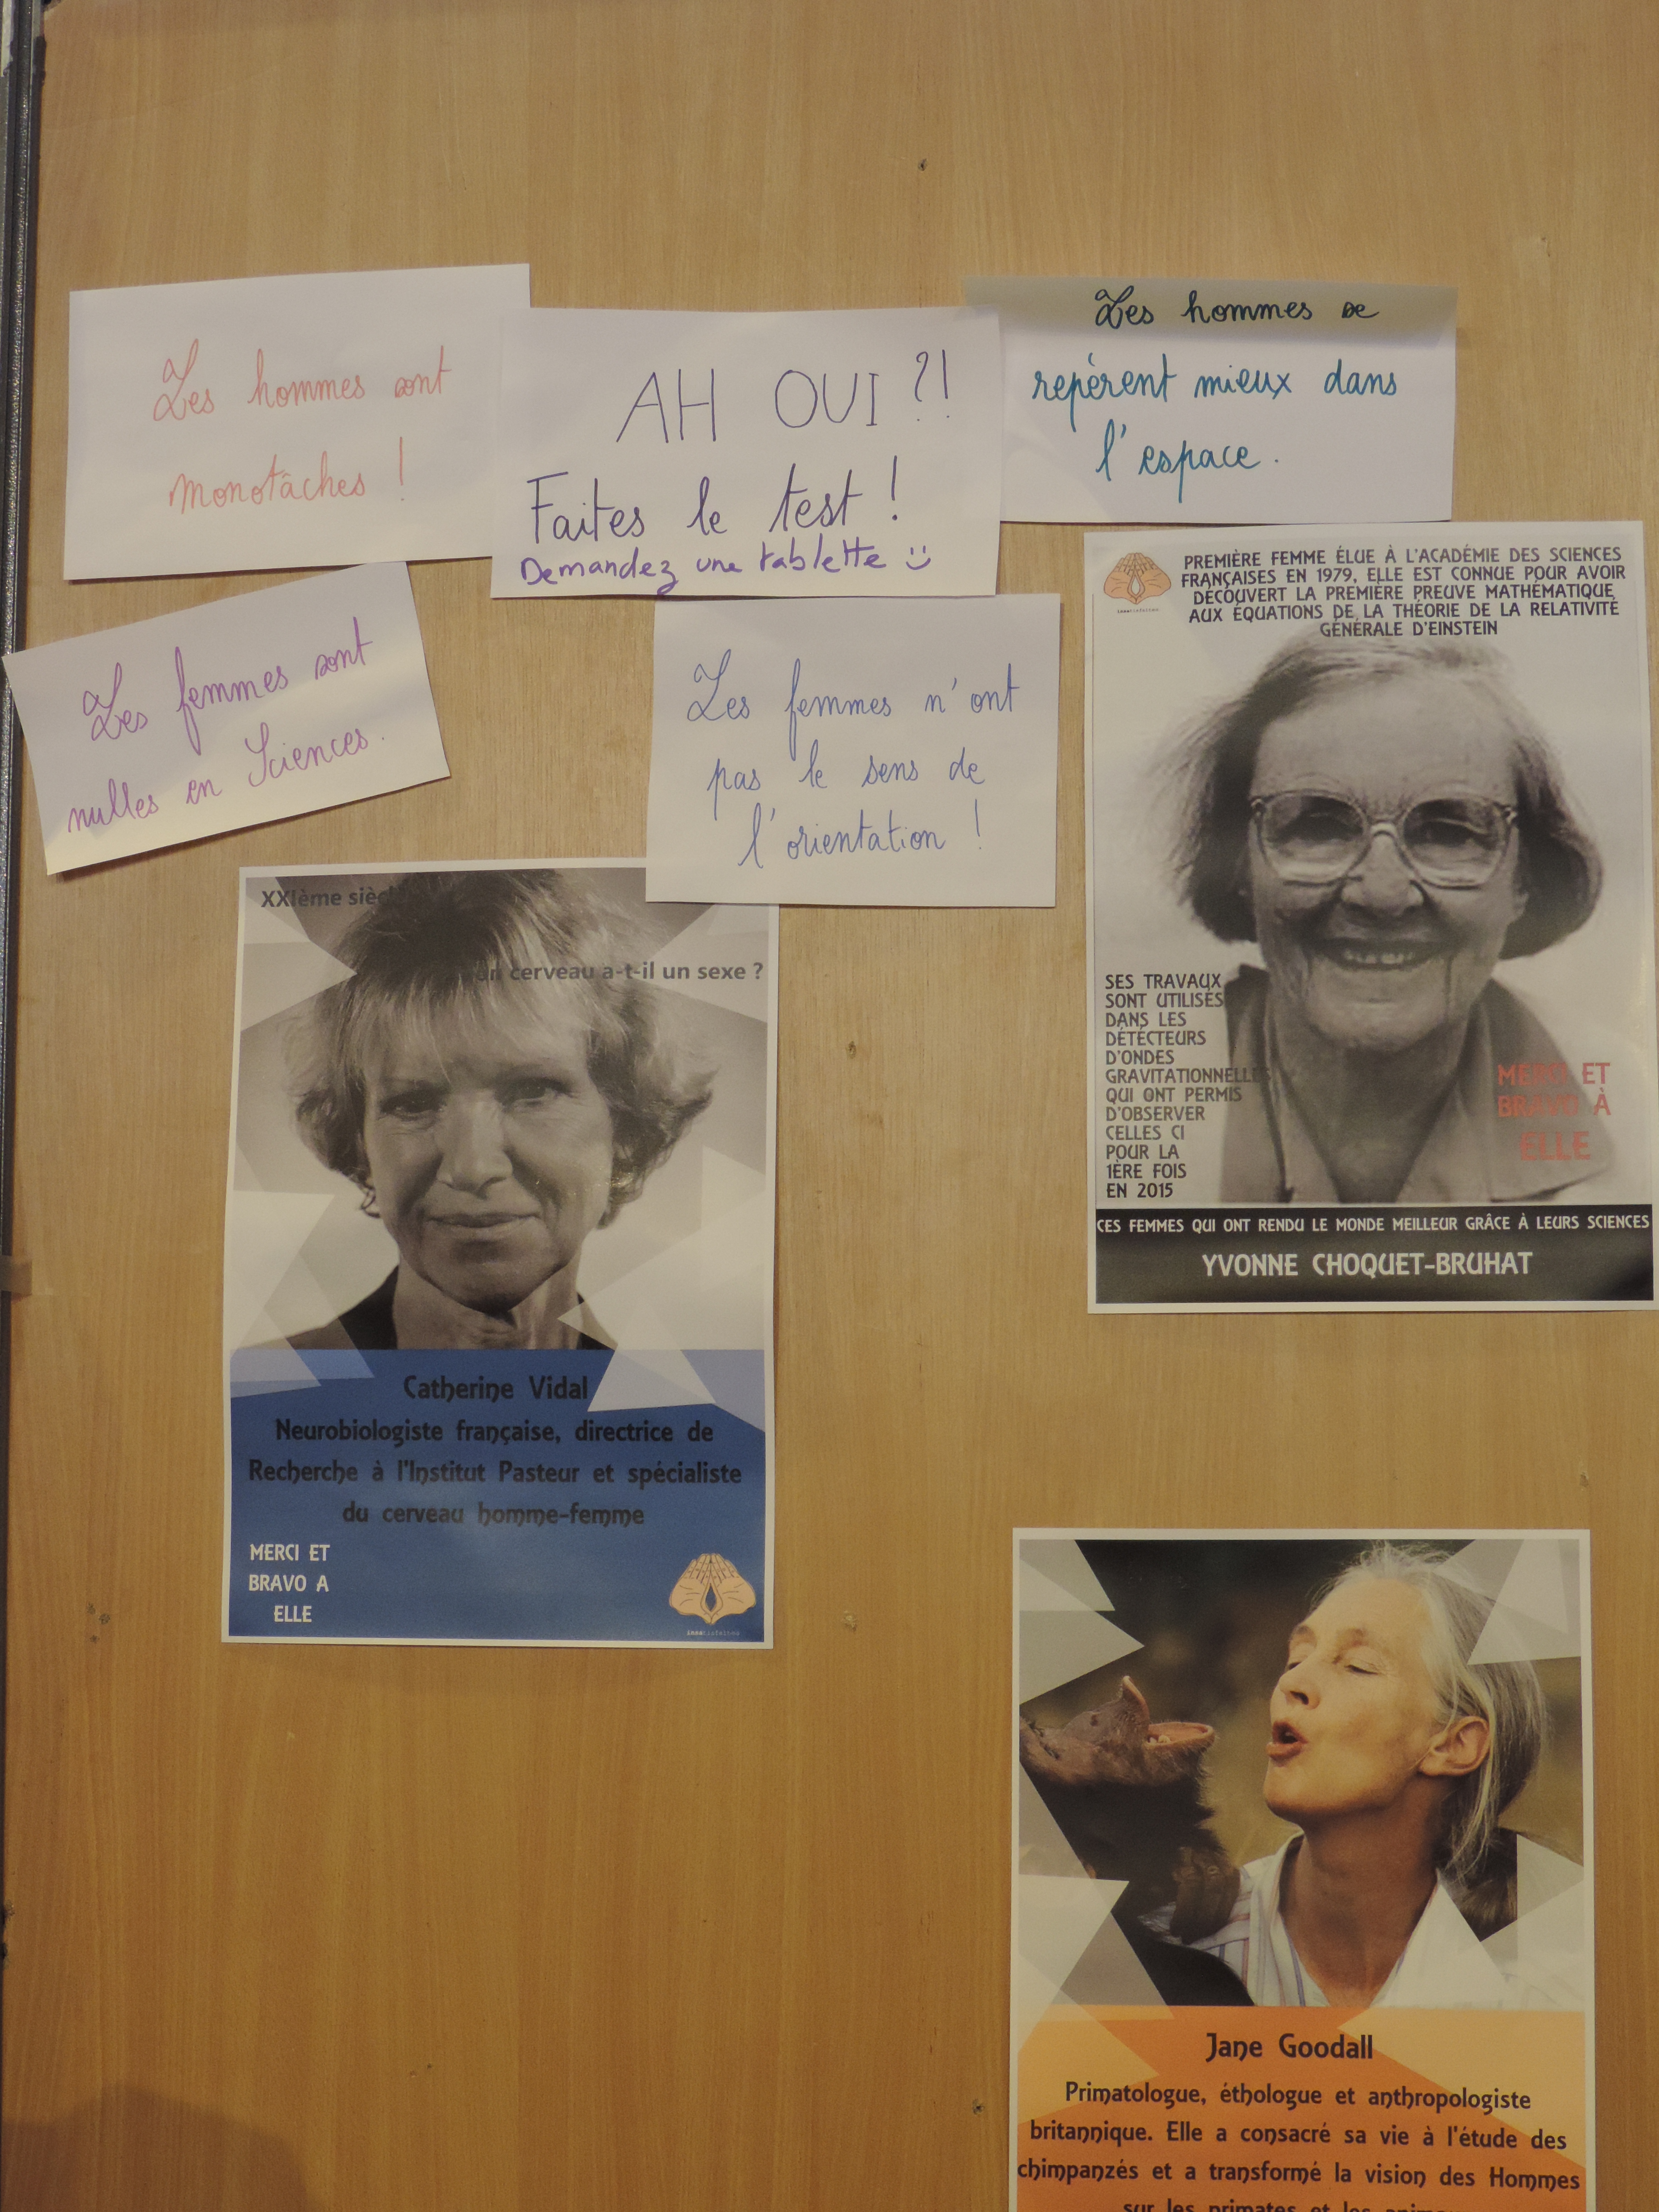 Les hommes sont
monotâches !
AH OUI ?!
Faites le test !
Demandez une tablette :)
Les hommes se
repèrent mieux dans
l'espace.
Les femmes sont
nulles en Sciences.
Les femmes n'ont
pas le sens de
l'orientation !
PREMIÈRE FEMME ÉLUE À L'ACADÉMIE DES SCIENCES
FRANÇAISES EN 1979, ELLE EST CONNUE POUR AVOIR
DÉCOUVERT LA PREMIÈRE PREUVE MATHÉMATIQUE
AUX ÉQUATIONS DE LA THÉORIE DE LA RELATIVITÉ
GÉNÉRALE D'EINSTEIN
SES TRAVAUX
SONT UTILISÉS
DANS LES
DÉTÉCTEURS
D'ONDES
GRAVITATIONNELLES
QUI ONT PERMIS
D'OBSERVER
CELLES CI
POUR LA
1ÈRE FOIS
EN 2015
MERCI ET
BRAVO À
ELLE
CES FEMMES QUI ONT RENDU LE MONDE MEILLEUR GRÂCE À LEURS SCIENCES
YVONNE CHOQUET-BRUHAT
XXIème
cerveau a-t-il un sexe ?
Catherine Vidal
Neurobiologiste française, directrice de
Recherche à l'Institut Pasteur et spécialiste
du cerveau homme-femme
MERCI ET
BRAVO A
ELLE
Jane Goodall
Primatologue, éthologue et anthropologiste
britannique. Elle a consacré sa vie à l'étude des
chimpanzés et a transformé la vision des Hommes
sur les primates et les